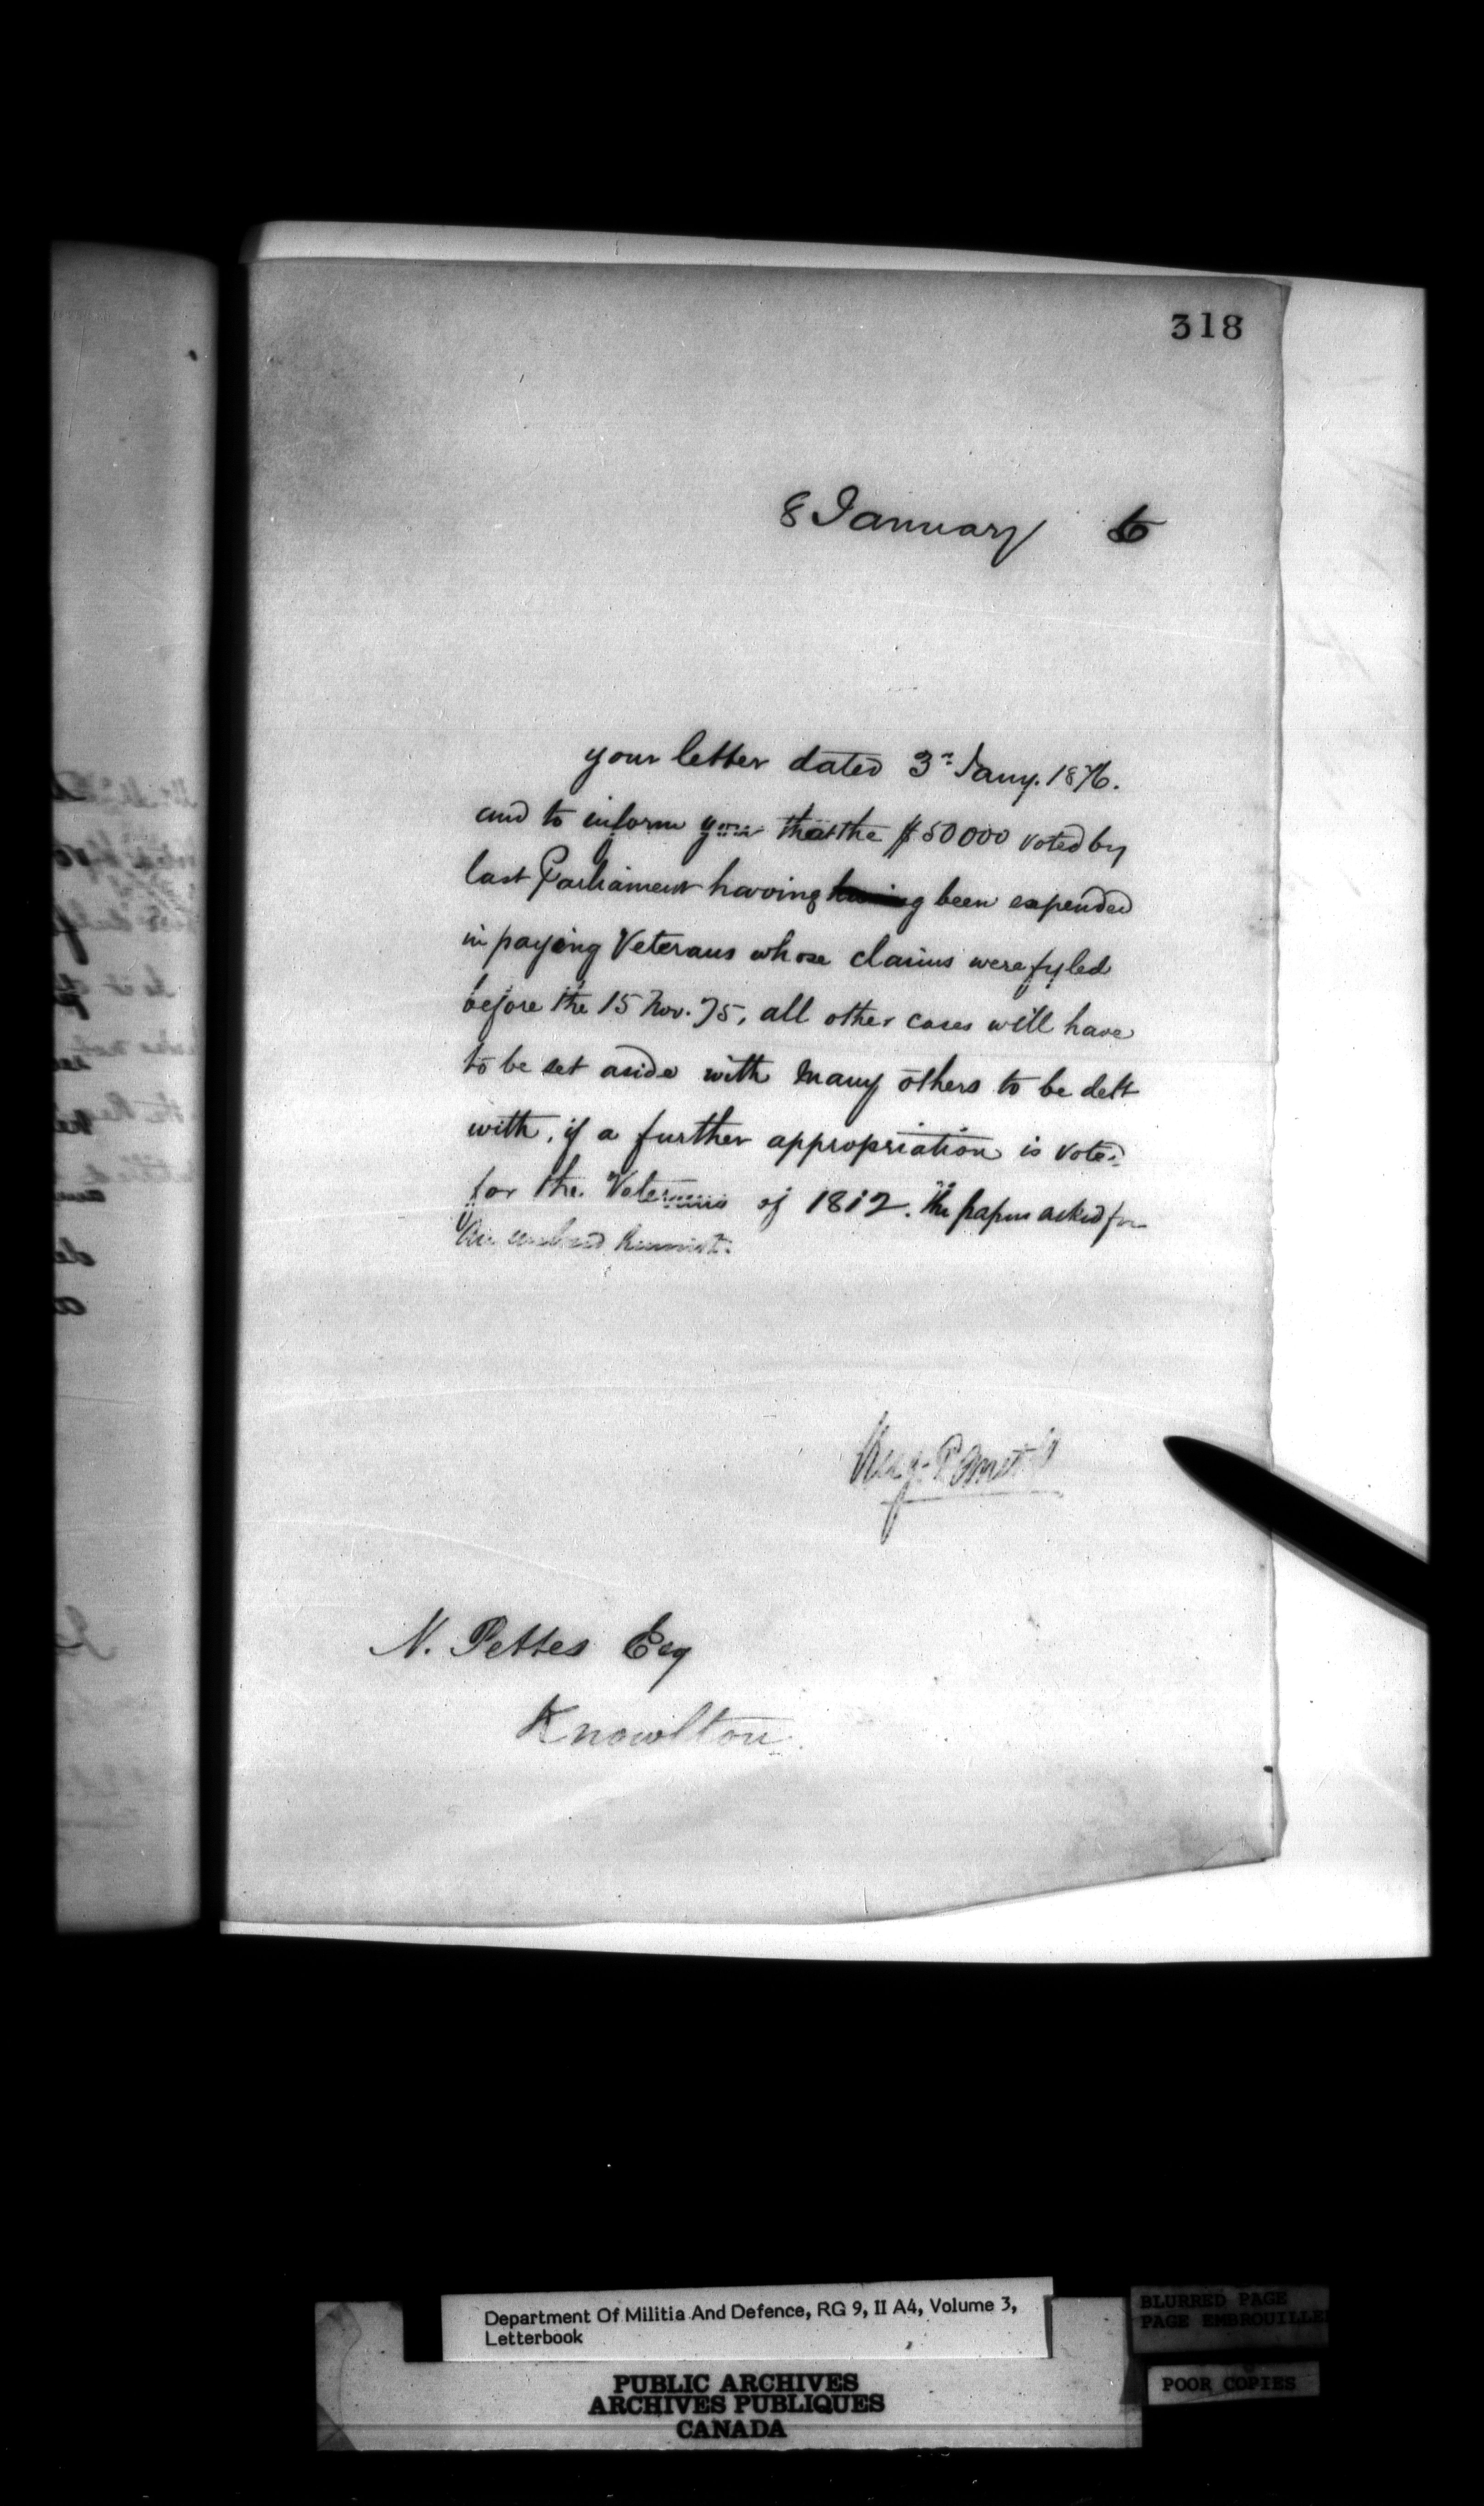 318
8 January 6
your letter dated 3rd Jany. 1876.
and to inform you that the $50000 voted by
last Parliament having having been expended
in paying Veterans whose claims were fyled
before the 15 Nov. 75, all other cases will have
to be set aside with many others to be delt
with, if a further appropriation is voted
for the Veterans of 1812. The papers asked for
N. Pettes Esq
Knowlton
Department Of Militia And Defence, RG 9, II A4, Volume 3,
Letterbook
PUBLIC ARCHIVES
ARCHIVES PUBLIQUES
CANADA
BLURRED PAGE
PAGE EMBROUILLE
POOR COPIES